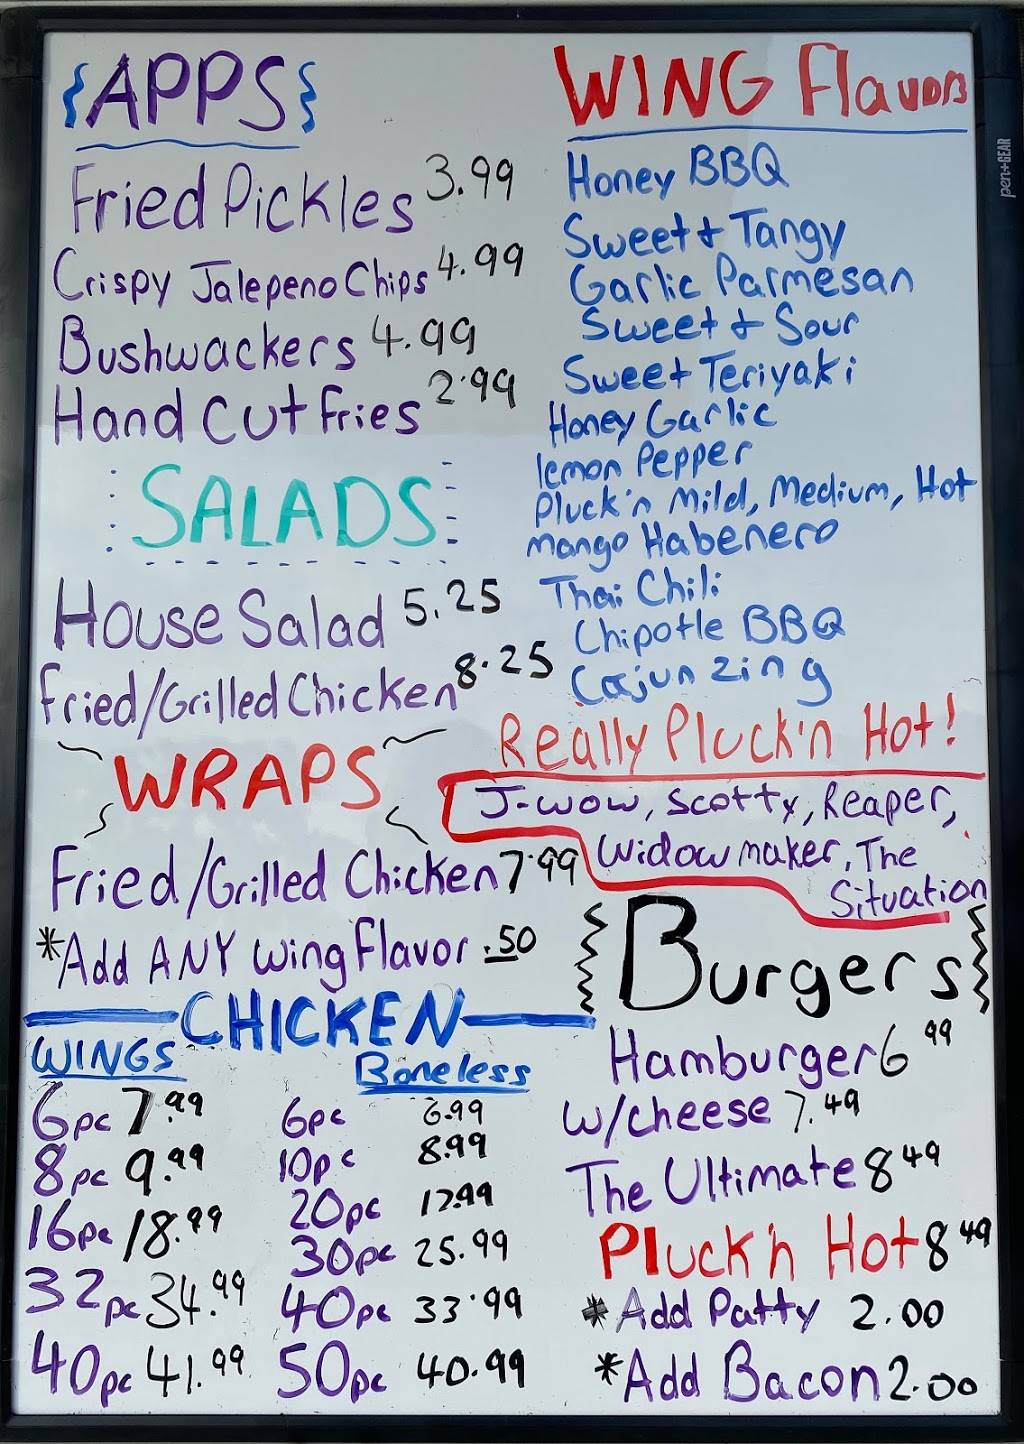 {APPS}
Fried Pickles 3.99
Crispy Jalepeno Chips 4.99
Bushwackers 4.99
Hand Cut Fries 2.99
SALADS
House Salad 5.25
Fried/Grilled Chicken 8.25
WRAPS
Fried/Grilled Chicken 7.99
*Add ANY Wing Flavor .50
CHICKEN
WINGS
6pc 7.99
8pc 9.99
16pc 18.99
32pc 34.99
40pc 41.99
Boneless
6pc 6.99
10pc 8.99
20pc 17.99
30pc 25.99
40pc 33.99
50pc 40.99
WING Flavors
Honey BBQ
Sweet + Tangy
Garlic Parmesan
Sweet + Sour
Sweet Teriyaki
Honey Garlic
lemon Pepper
Pluck'n Mild, Medium, Hot
Mango Habenero
Thai Chili
Chipotle BBQ
Cajun Zing
Really Pluck'n Hot!
J-wow, Scotty, Reaper,
Widowmaker, The
Situation
Burgers
Hamburger 6 99
w/cheese 7.49
The Ultimate 8 49
Pluck'n Hot 8 49
*Add Patty 2.00
*Add Bacon 2.00
pen+GEAR